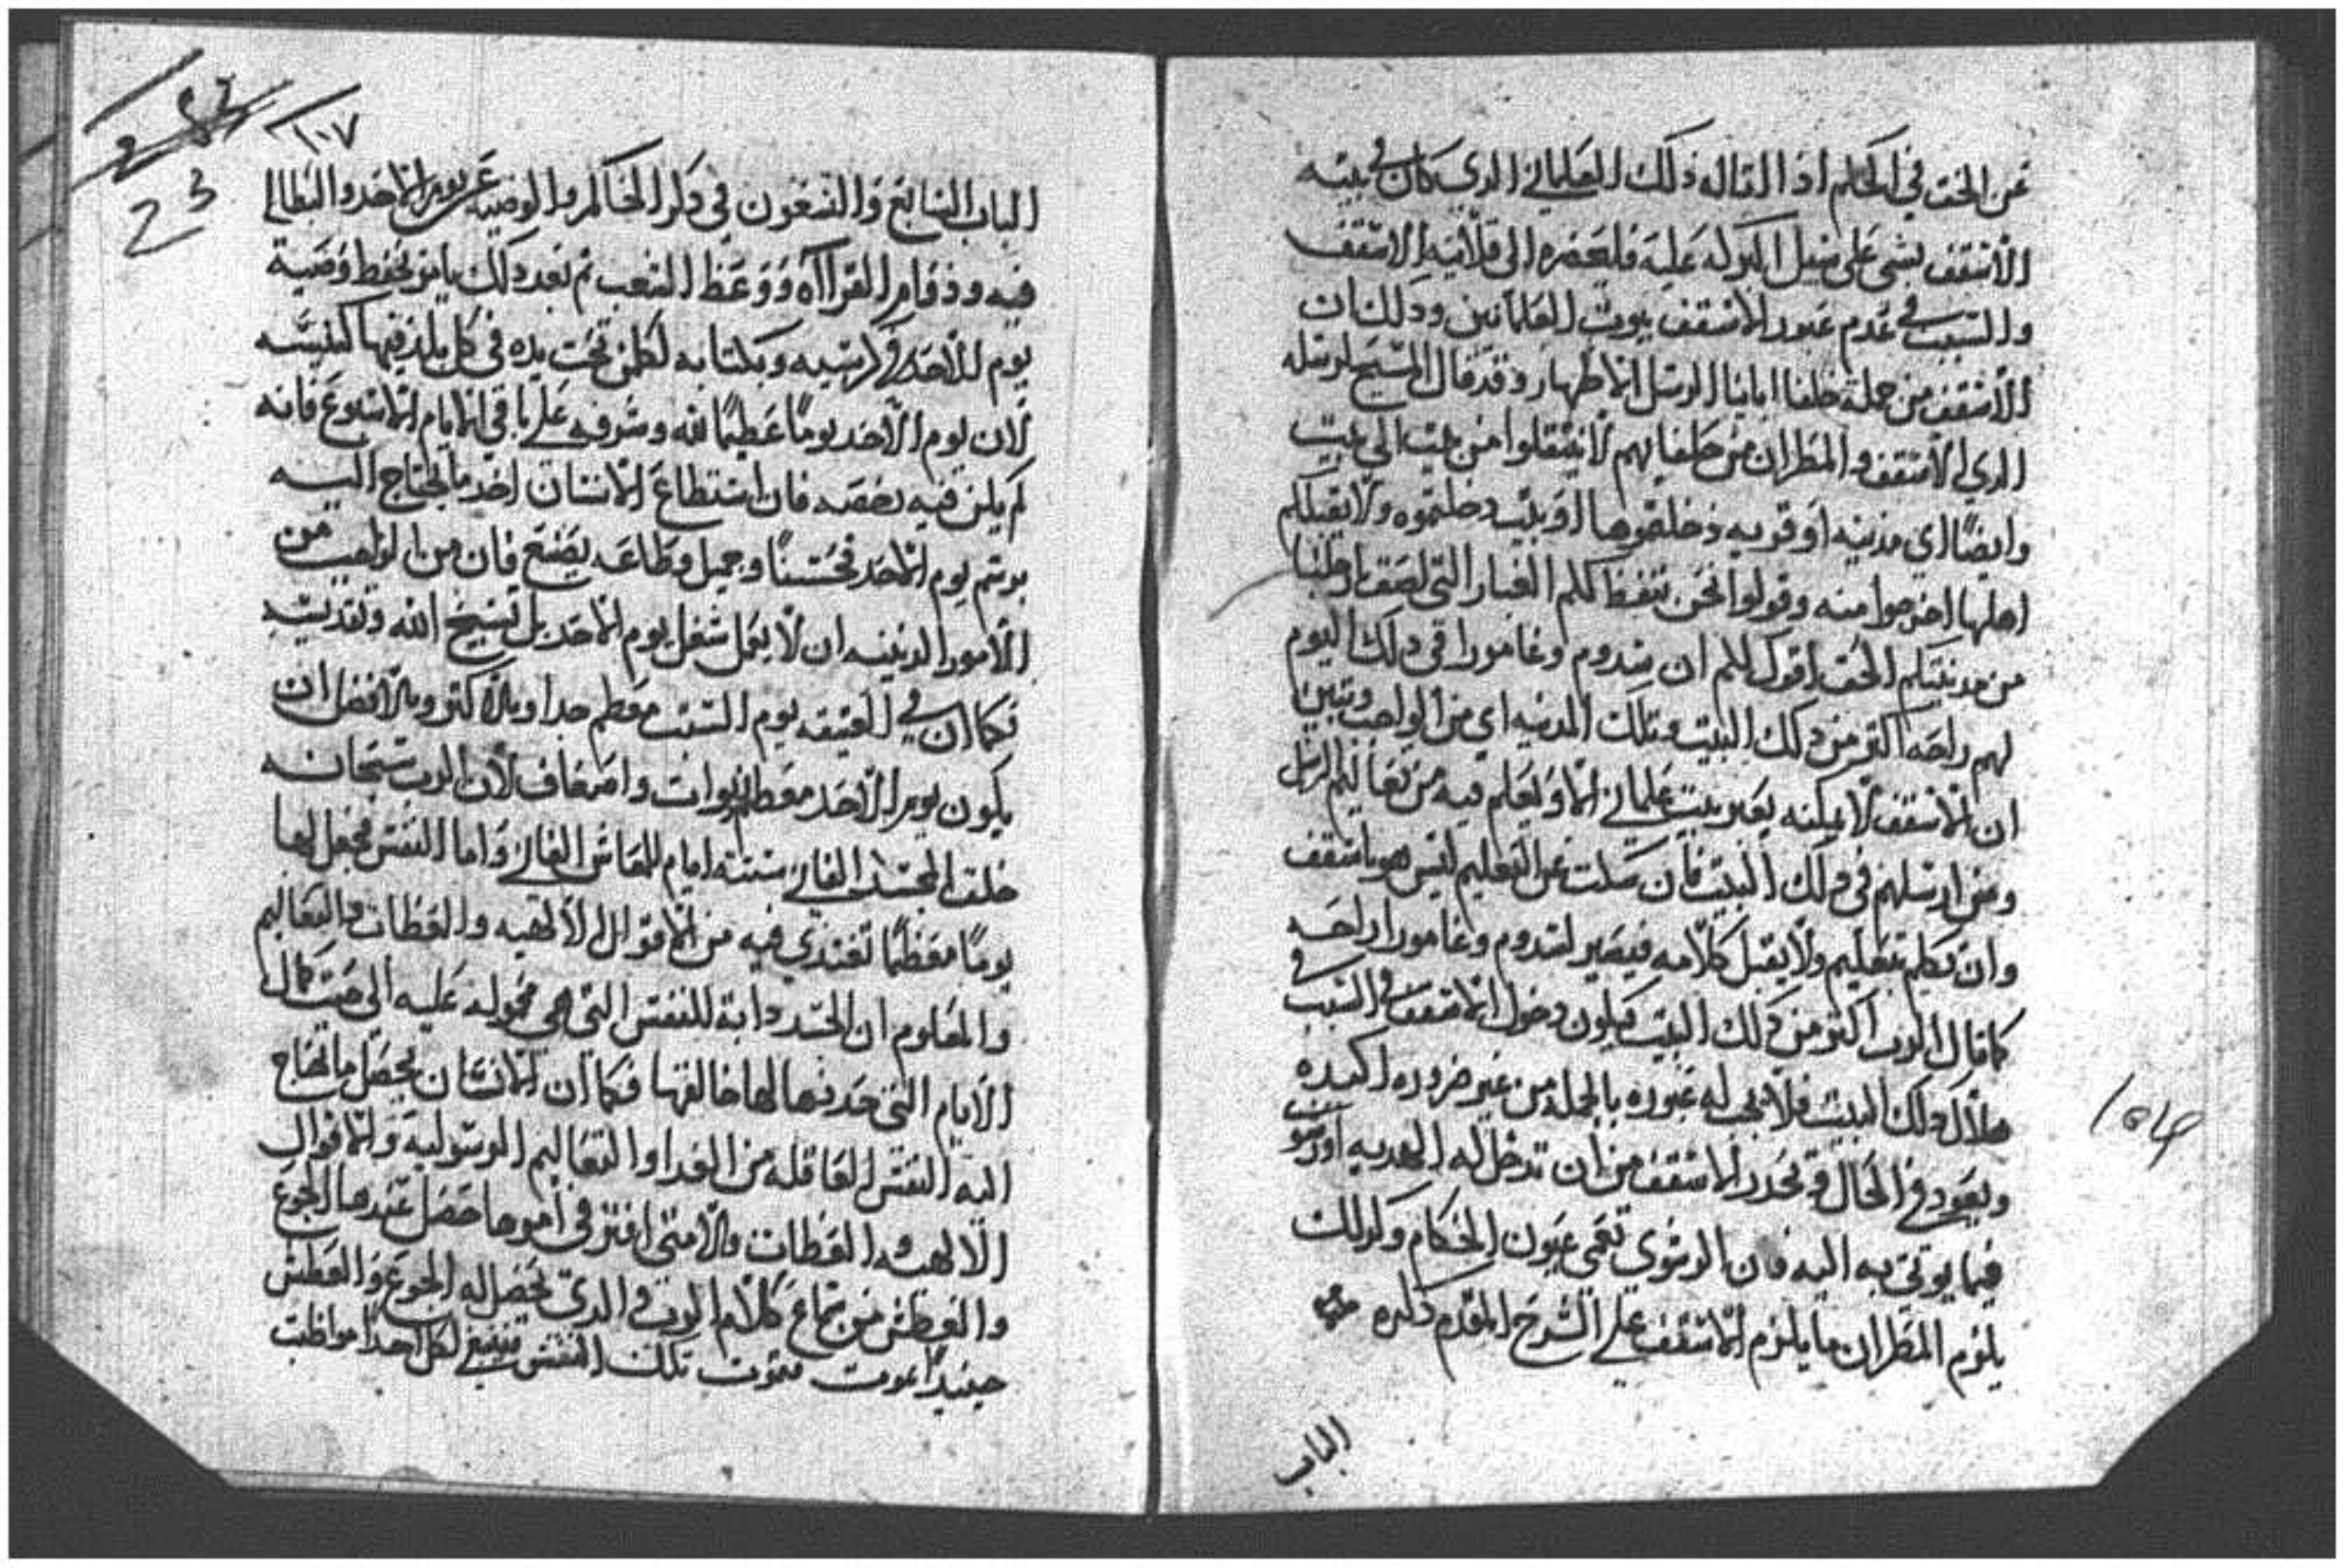 عن الحق في الحكم اذا اتا له ذلك العلماني الدي كان في بيته
الاسقف بشي على سبيل البركه عليه فليحضره الى قلايه الاسقف
والسبب في عدم عبور الاسقف بيوت العلمانين وذلك ان
الاسقف من جملة خلفا ابائنا الرسل الاطهار وقد قال المسيح لرسله
الدي الاسقف والمطران من خلفايهم لا تنتقلوا من بيت الى بيت
وايضًا اي مدينه او قريه دخلتموها او بيت دخلتموه ولا يقبلكم
اهلها اخرجوا منه وقولوا نحن ننفظ لكم الغبار التي لصق بارجلنا
من مدينتكم الحق اقول لكم ان سدوم وغامورا في دلك اليوم
لهم راحه اكتر من دلك البيت وتلك المدينه اي من الواجب وتبين
ان الاسقف لا يمكنه يعبر بيت علماني الا ويعلم فيه من تعاليم الرسل
ومن ارسلهم في دلك البيت فان سكت عن التعليم ليس هو باسقف
وان تكلم بتعليم ولا يقبل كلامه فيصير لسدوم وغامورا راحه
كما قال الرب اكتر من دلك البيت فيكون دخول الاسقف في السبب
هلاك دلك البيت فلا يجب له عبوره بالجمله من غير ضروره اكيده
ويعود في الحال وتحدر الاسقف من ان تدخل له الهديه او
فيما يوتى به اليه فان الرشوي تعمى عيون الحكام وكدلك
يلزم المطران ما يلزم الاسقف على الشرح المقدم دكره
الباب
١٠٧
23
الباب السابع والتسعون في دكر الحاكم والوصيه عن يوم الاحد والبطاله
فيه وقوام القراآه ووعظ الشعب تم بعد دلك يامر بحفظ وصية
يوم الاحد في كرسيه وبكتابه لكل من تحت يده في كل بلد فيها كنيسه
لان يوم الاحد يومًا عظيمًا لله وشرفه على باقي الايام الاسبوع فانه
لم يكن فيه يخصه فان استطاع الانسان اخد ما يحتاج اليه
يوم الاحد فحسنًا وجميل وطاعه يصنع فان من الواجب من
الامور الدينيه ان لا يعمل شغل يوم الاحد بل تسبيح الله وتقديسه
فكما ان في العتيقه يوم السبت معظم جدا وبالاكتر وبالافضل ان
يكون يوم الاحد معظم واضعاف لان الرب سبحانه
خلق الجسد الفاني ستة ايام للمعاش الفاني واما النفس فجعل لها
يومًا معظمًا تغتدي فيه من الاقوال الالهيه والعظات والتعاليم
والمعلوم ان الجسد دابة للنفس التي هي محموله عليه الى حيت كمال
الايام التي حددها لها خالقها فكما ان الانسان يحصل ما تحتاج
اليه النفس العاقله من الغدا والتعاليم الرسوليه والاقوال
الالهيه والعظات والا متى افتر في امورها حصل عندها الجوع
والعطش من سماع كلام الرب والدي يحصل له الجوع والعطش
حينيدًا يموت فتموت تلك النفس فينبغي لكل احدًا مواظبت